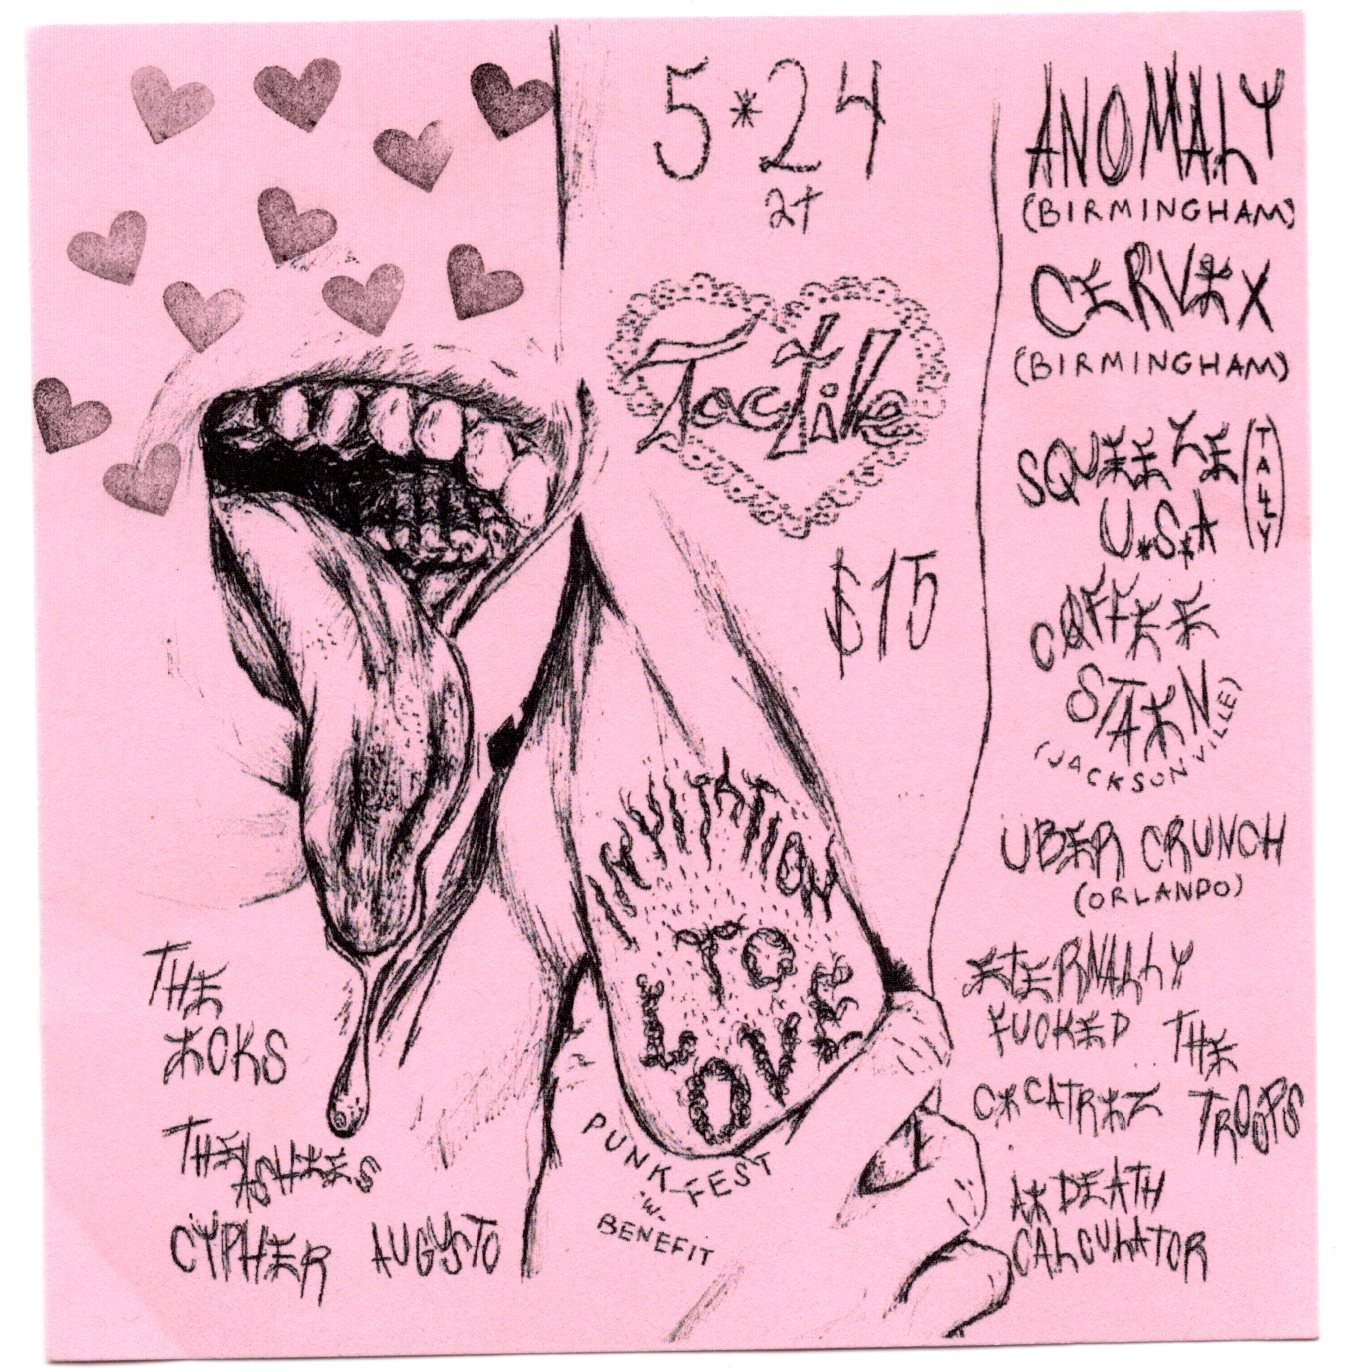 5*24
2+
TacTile
$15
INVITATION
TO
LOVE
PUNK FEST
"W."
BENEFIT
ANOMALY
(BIRMINGHAM)
CERVIX
(BIRMINGHAM)
SQUEEZE
U.S.A
(TALLY)
COFFEE
STAIN
(JACKSONVILLE)
UBER CRUNCH
(ORLANDO)
ETERNALLY
FUCKED
THE
TROOPS
CICATRIZ
AI DEATH
CALCULATOR
THE
ICKS
THE
ASHIES
CYPHER AUGUSTO